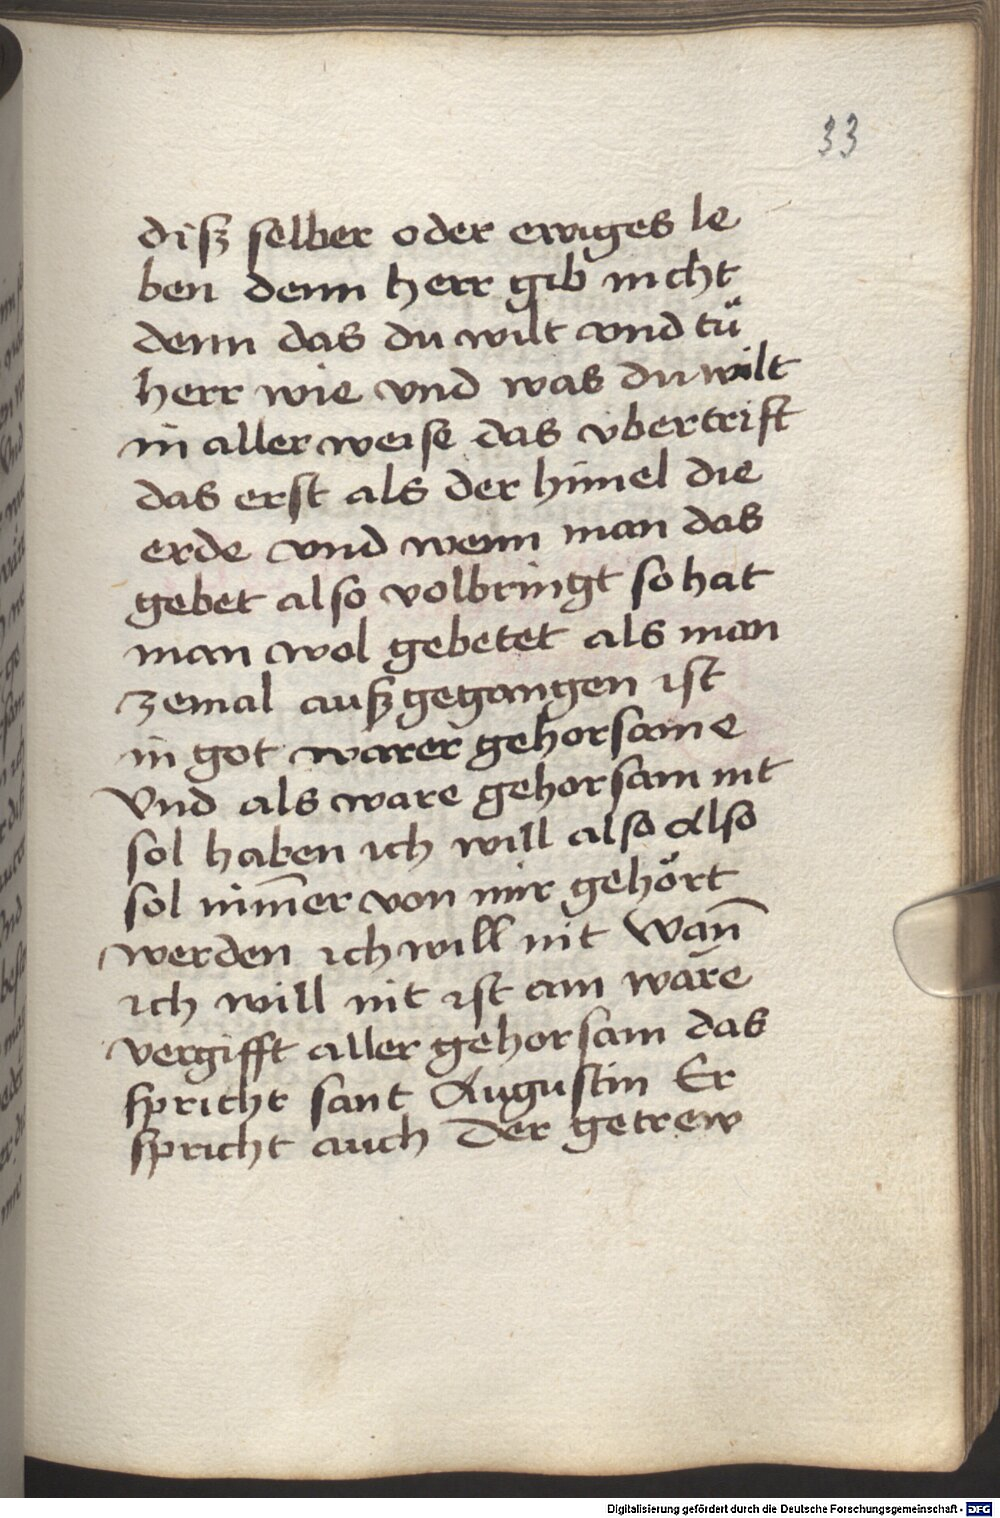 33
diſz ſelber oder ewiges le
ben denn herr gib nicht
denn das du wilt vnd tü
herr wie vnd was du wilt
in aller weiſe das vbertrift
das erſt als der himel die
erde vnd wenn man das
gebet alſo volbringt ſo hat
man wol gebetet als man
zemal auſzgegangen iſt
in got warer gehorſame
Vnd als ware gehorſam nit
ſol haben ich will alſo alſo
ſol nim̄er von mir gehört
werden ich will nit Wan̄
ich will nit iſt ain ware
vergifft aller gehorſam das
ſpricht ſant Auguſtin Er
ſpricht auch Der getrew
Digitalisierung gefördert durch die Deutsche Forschungsgemeinschaft - DFG